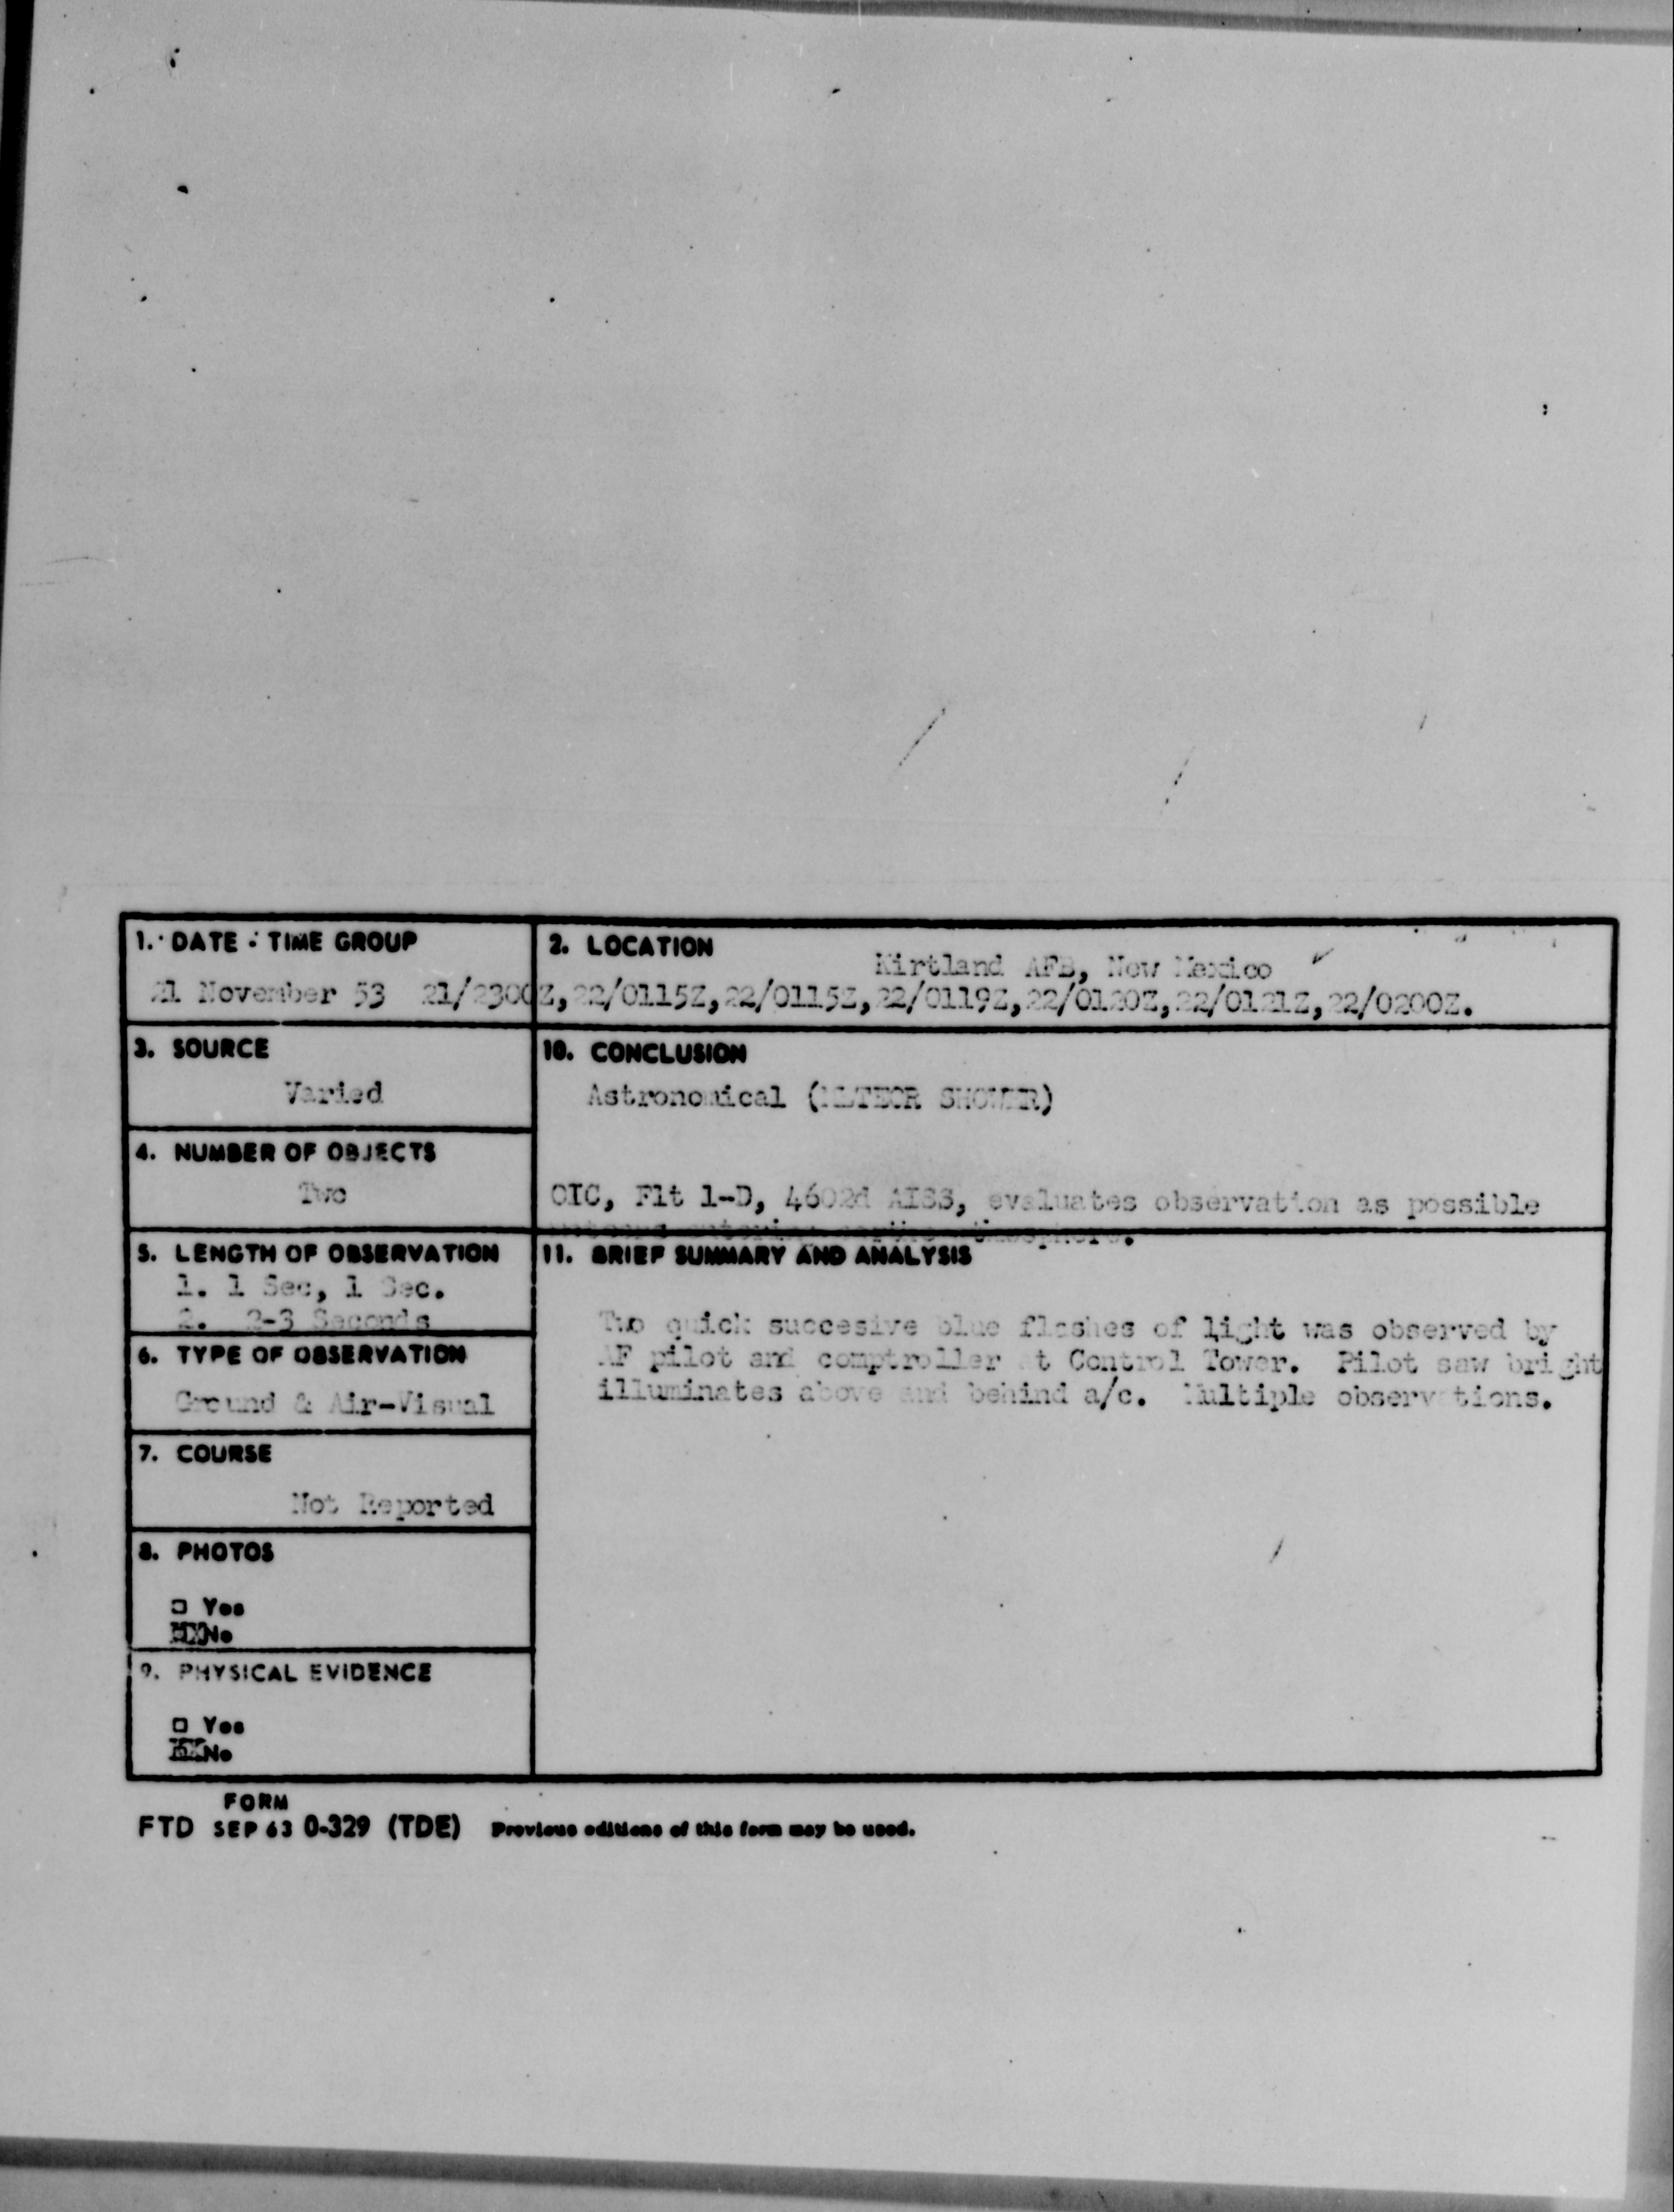 1. DATE - TIME GROUP
21 November 53 21/2300Z,22/0115Z,22/0115Z,22/0119Z,22/0120Z,22/0121Z,22/0200Z.
2. LOCATION
Kirtland AFB, New Mexico
3. SOURCE
Varied
10. CONCLUSION
Astronomical (METEOR SHOWER)
OIC, Flt 1-D, 4602d AISS, evaluates observation as possible
meteors entering earths atmosphere.
4. NUMBER OF OBJECTS
Two
5. LENGTH OF OBSERVATION
1. 1 Sec, 1 Sec.
2. 2-3 Seconds
11. BRIEF SUMMARY AND ANALYSIS
Two quick succesive blue flashes of light was observed by
AF pilot and comptroller at Control Tower. Pilot saw bright
illuminates above and behind a/c. Multiple observations.
6. TYPE OF OBSERVATION
Ground & Air-Visual
7. COURSE
Not Reported
8. PHOTOS
☐ Yes
XXNo
9. PHYSICAL EVIDENCE
☐ Yes
XXNo
FORM
FTD SEP 63 0-329 (TDE) Previous editions of this form may be used.